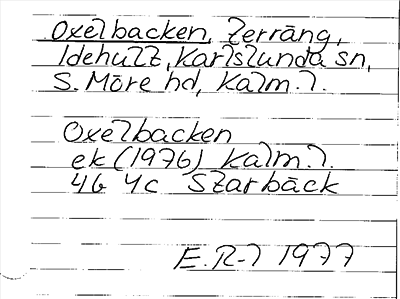 Oxelbacken, Terräng,
Idehult, Karlslunda sn,
S. Möre hd, Kalm. l.
Oxelbacken
ek (1976) Kalm. l.
4G 4c Starbäck
E.R-l 1977